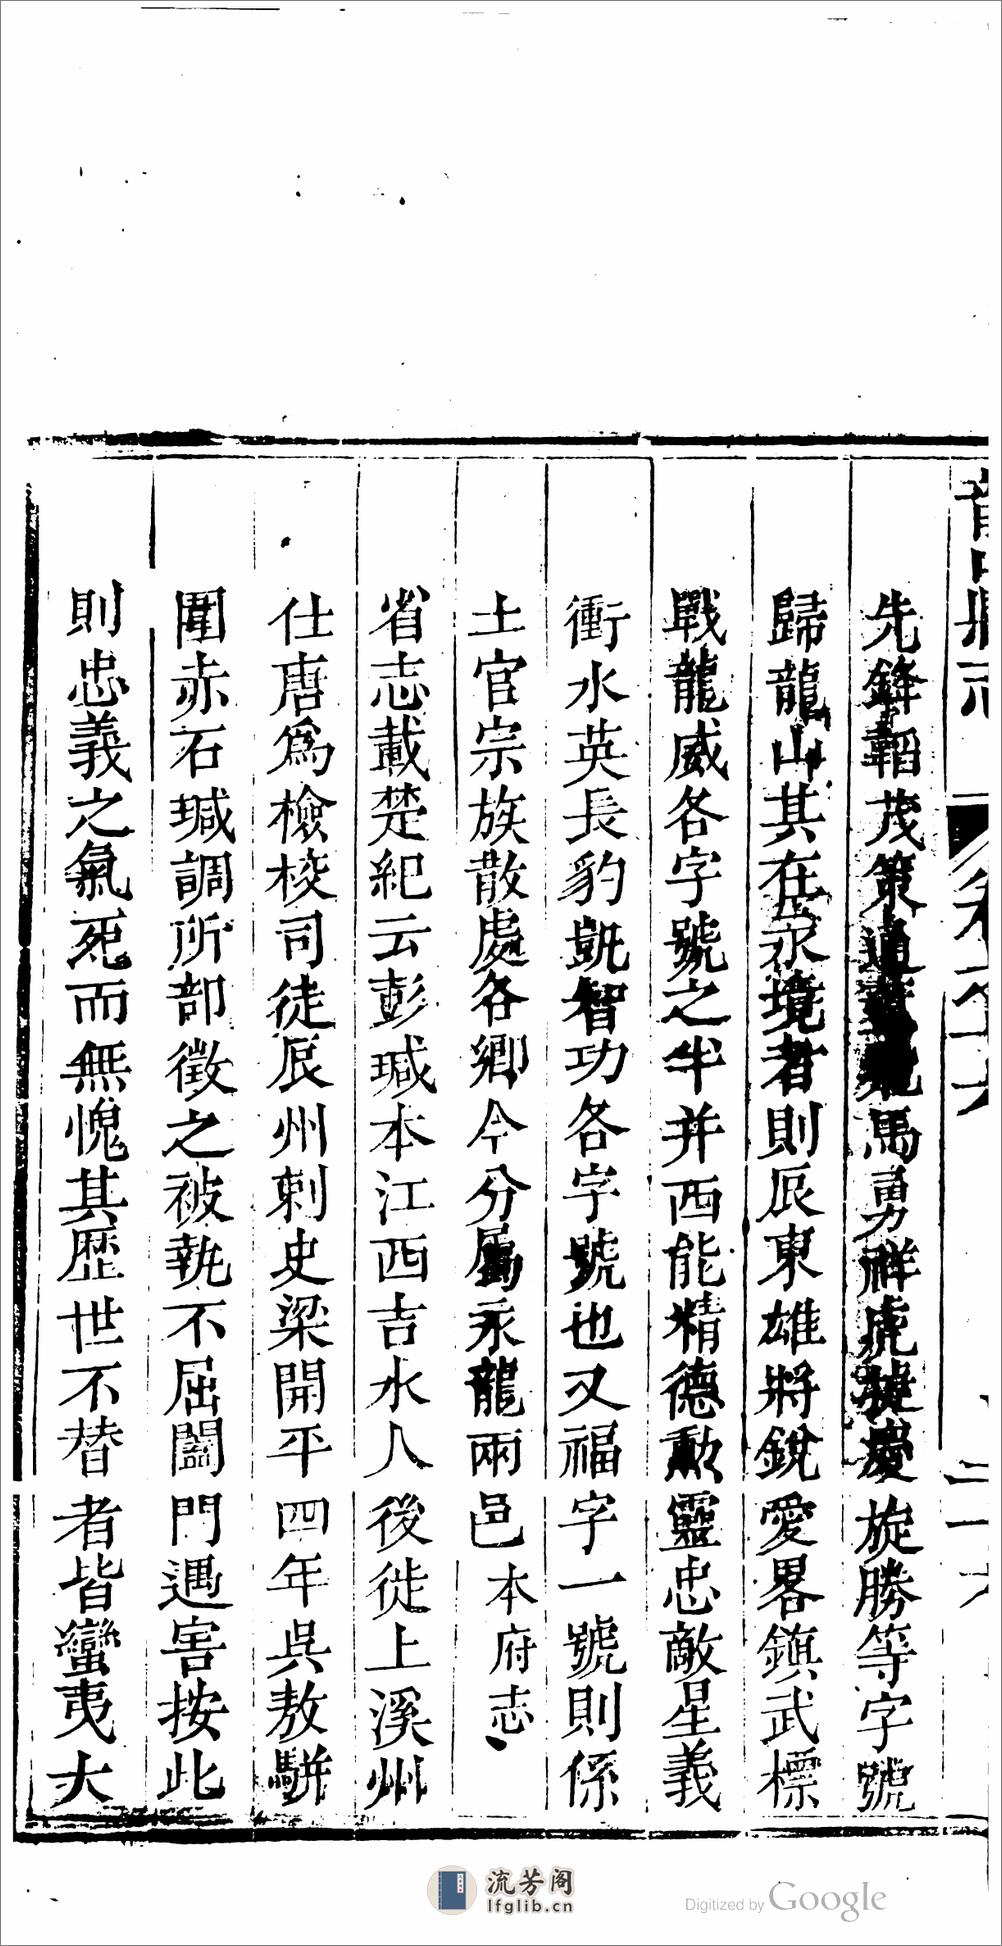 龍山縣志 卷之六
先鋒韜茂策通馬勇祥虎捷慶旋勝等字號
歸龍山其在永境者則辰東雄將銳愛畧鎮武標
戰龍威各字號之半并西能精德勲靈忠敵星義
衝水英長豹凱智功各字號也又福字一號則係
土官宗族散處各鄉今分屬永龍兩邑本府志
省志載楚紀云彭瑊本江西吉水人後徙上溪州
仕唐爲檢校司徒辰州刺史梁開平四年吳敖駢
圍赤石瑊調所部徵之被執不屈闔門遇害按此
則忠義之氣死而無愧其歷世不替者皆蠻夷大
流芳阁
lfglib.cn
Digitized by Google